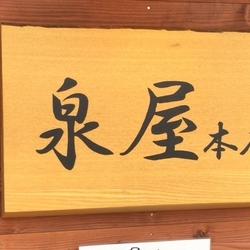 泉屋本